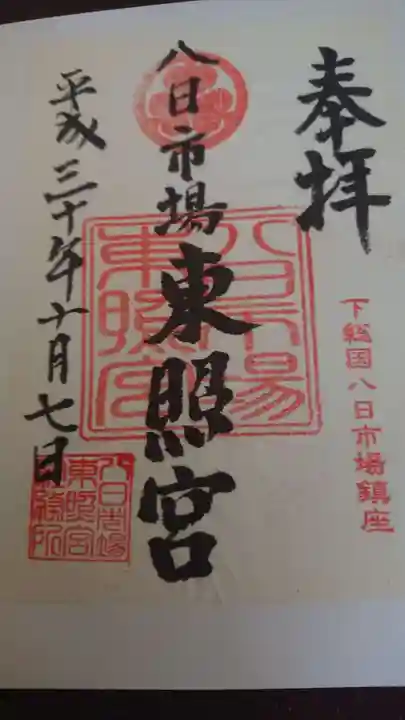 奉拝
下総国八日市場鎮座
八日市場東照宮
八日市場
東照宮
平成三十年十月七日
八日市場
東照宮
務所